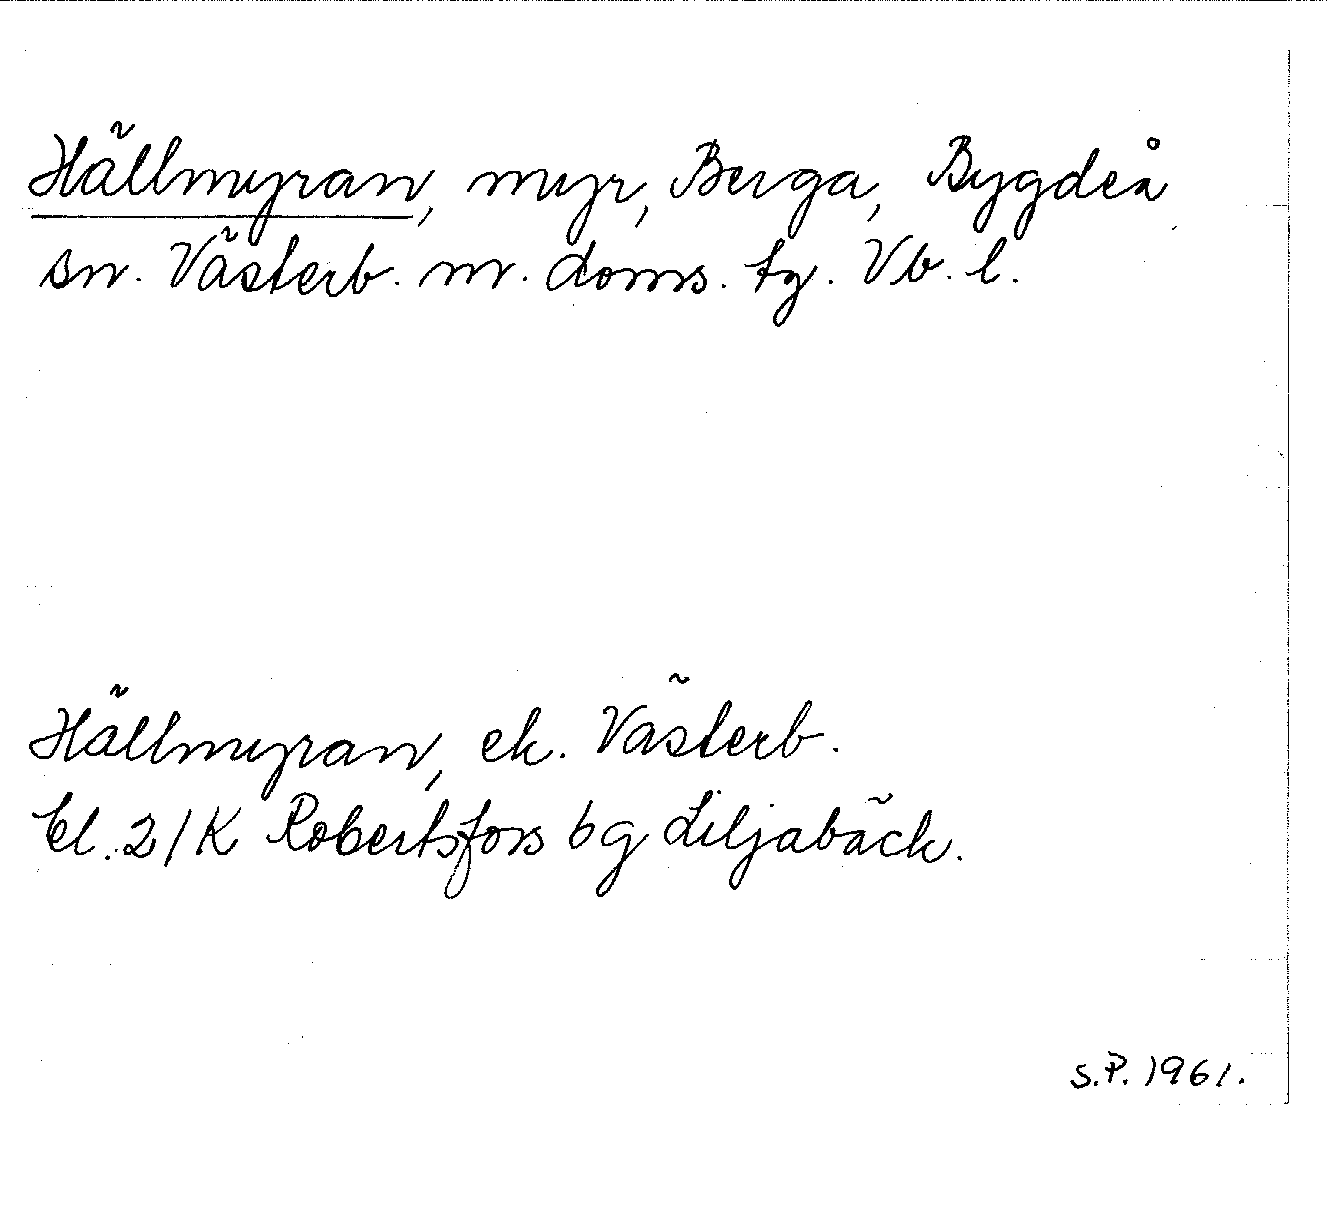 Hällmyran, myr, Berga, Bygdeå
sn. Västerb. m. doms. tg. Vb. l.
Hällmyran, ek. Västerb.
bl. 2/K Robertsfors bg Liljabäck.
S.P. 1961.